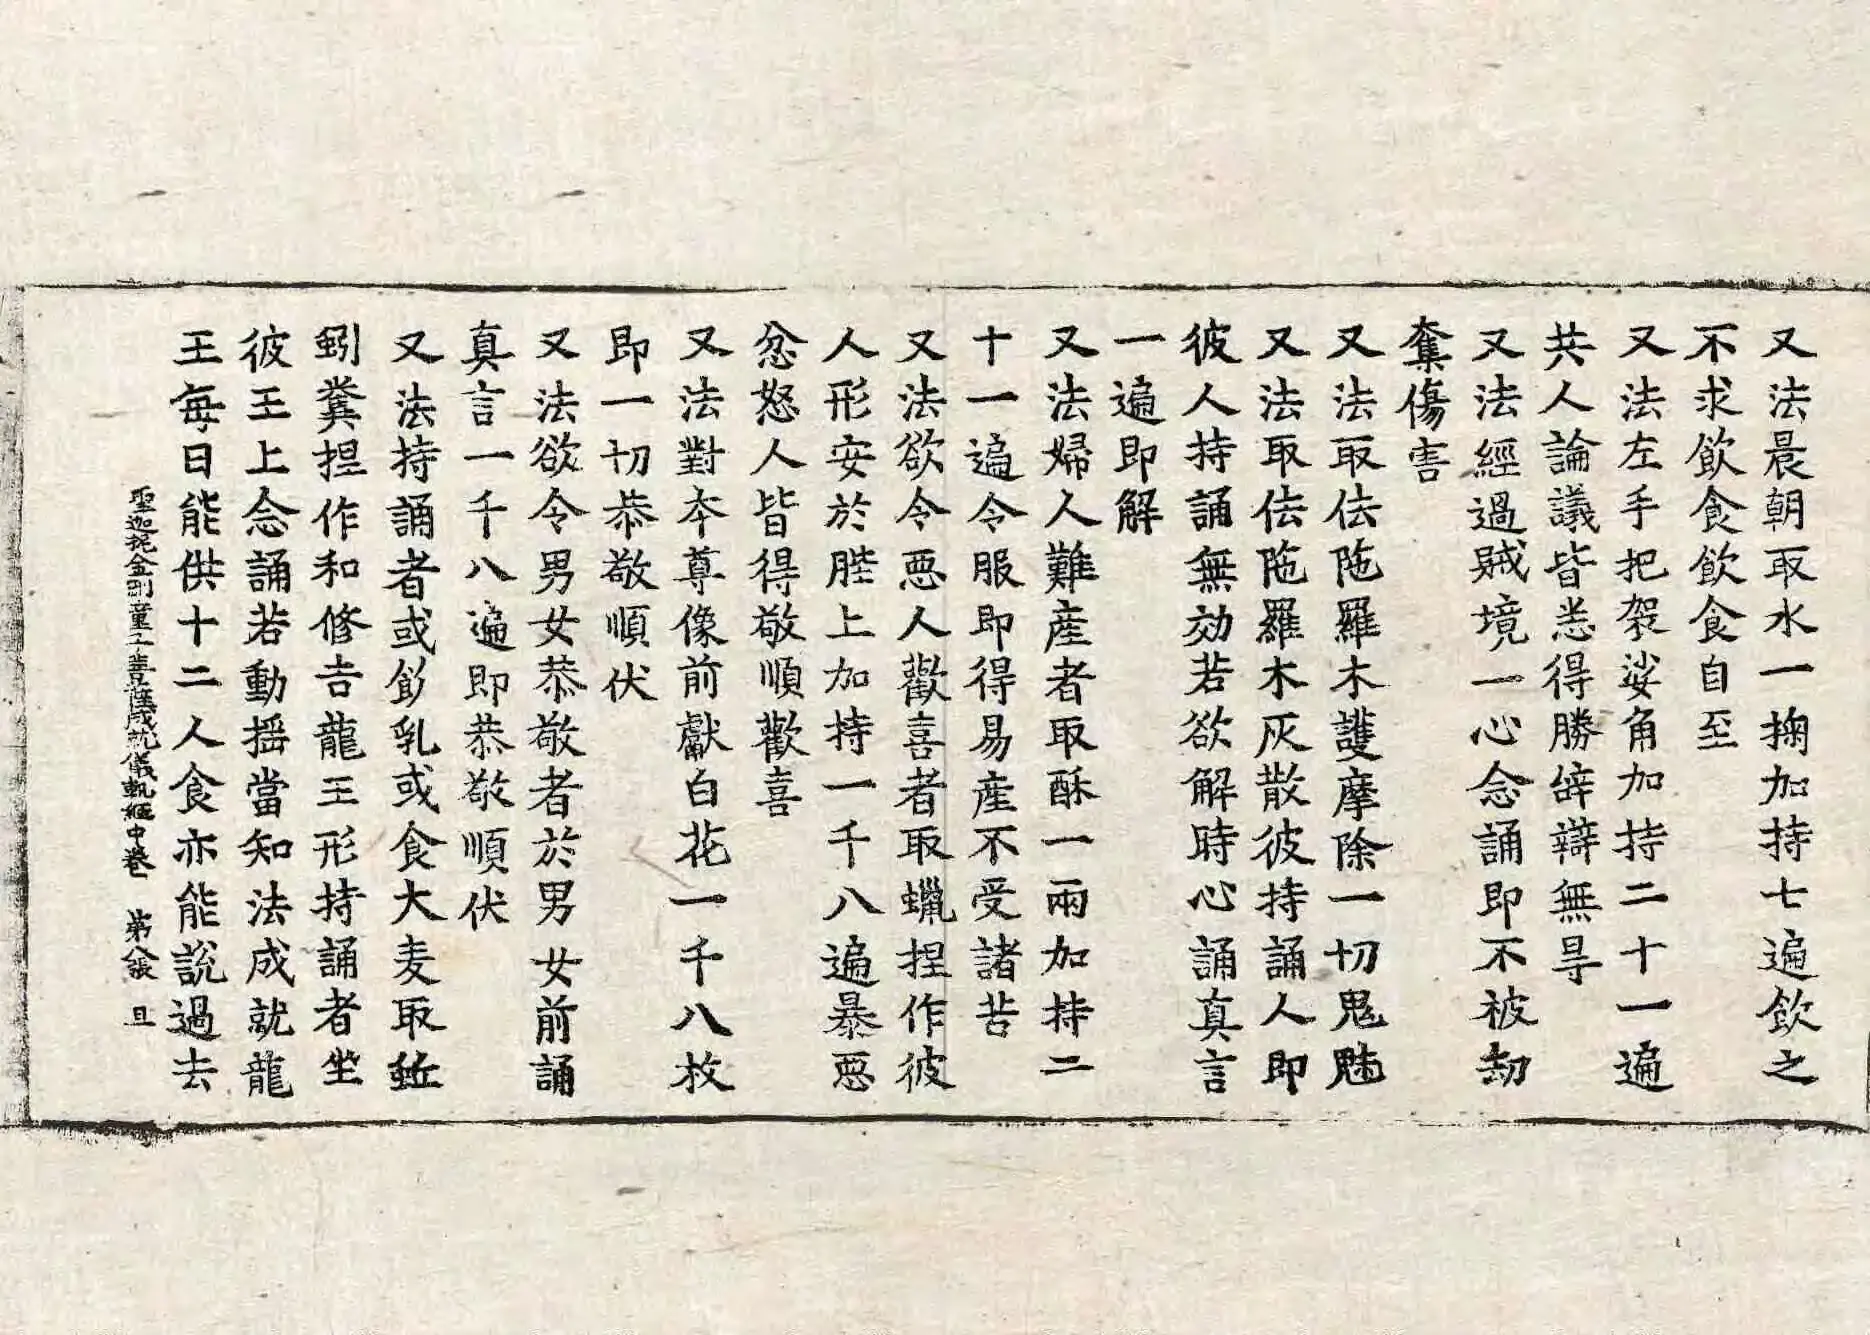 又法晨朝取水一掬加持七遍飲之
不求飲食飲食自至
又法左手把袈裟角加持二十一遍
共人論議皆悉得勝辝辯無㝵
又法經過賊境一心念誦即不被劫
奪傷害
又法取佉陁羅木護摩除一切鬼魅
又法取佉陁羅木灰散彼持誦人即
彼人持誦無効若欲解時心誦真言
一遍即解
又法婦人難產者取酥一兩加持二
十一遍令服即得易產不受諸苦
又法欲令惡人歡喜者取蠟捏作彼
人形安於䏶上加持一千八遍暴惡
忿怒人皆得敬順歡喜
又法對夲尊像前獻白花一千八枚
即一切恭敬順伏
又法欲令男女恭敬者於男女前誦
真言一千八遍即恭敬順伏
又法持誦者或飲乳或食大麦取蚯
蚓糞捏作和修吉龍王形持誦者坐
彼王上念誦若動揺當知法成就龍
王每日能供十二人食亦能說過去
聖迦抳金剛童子菩薩成就儀軌經中卷 第八張 旦